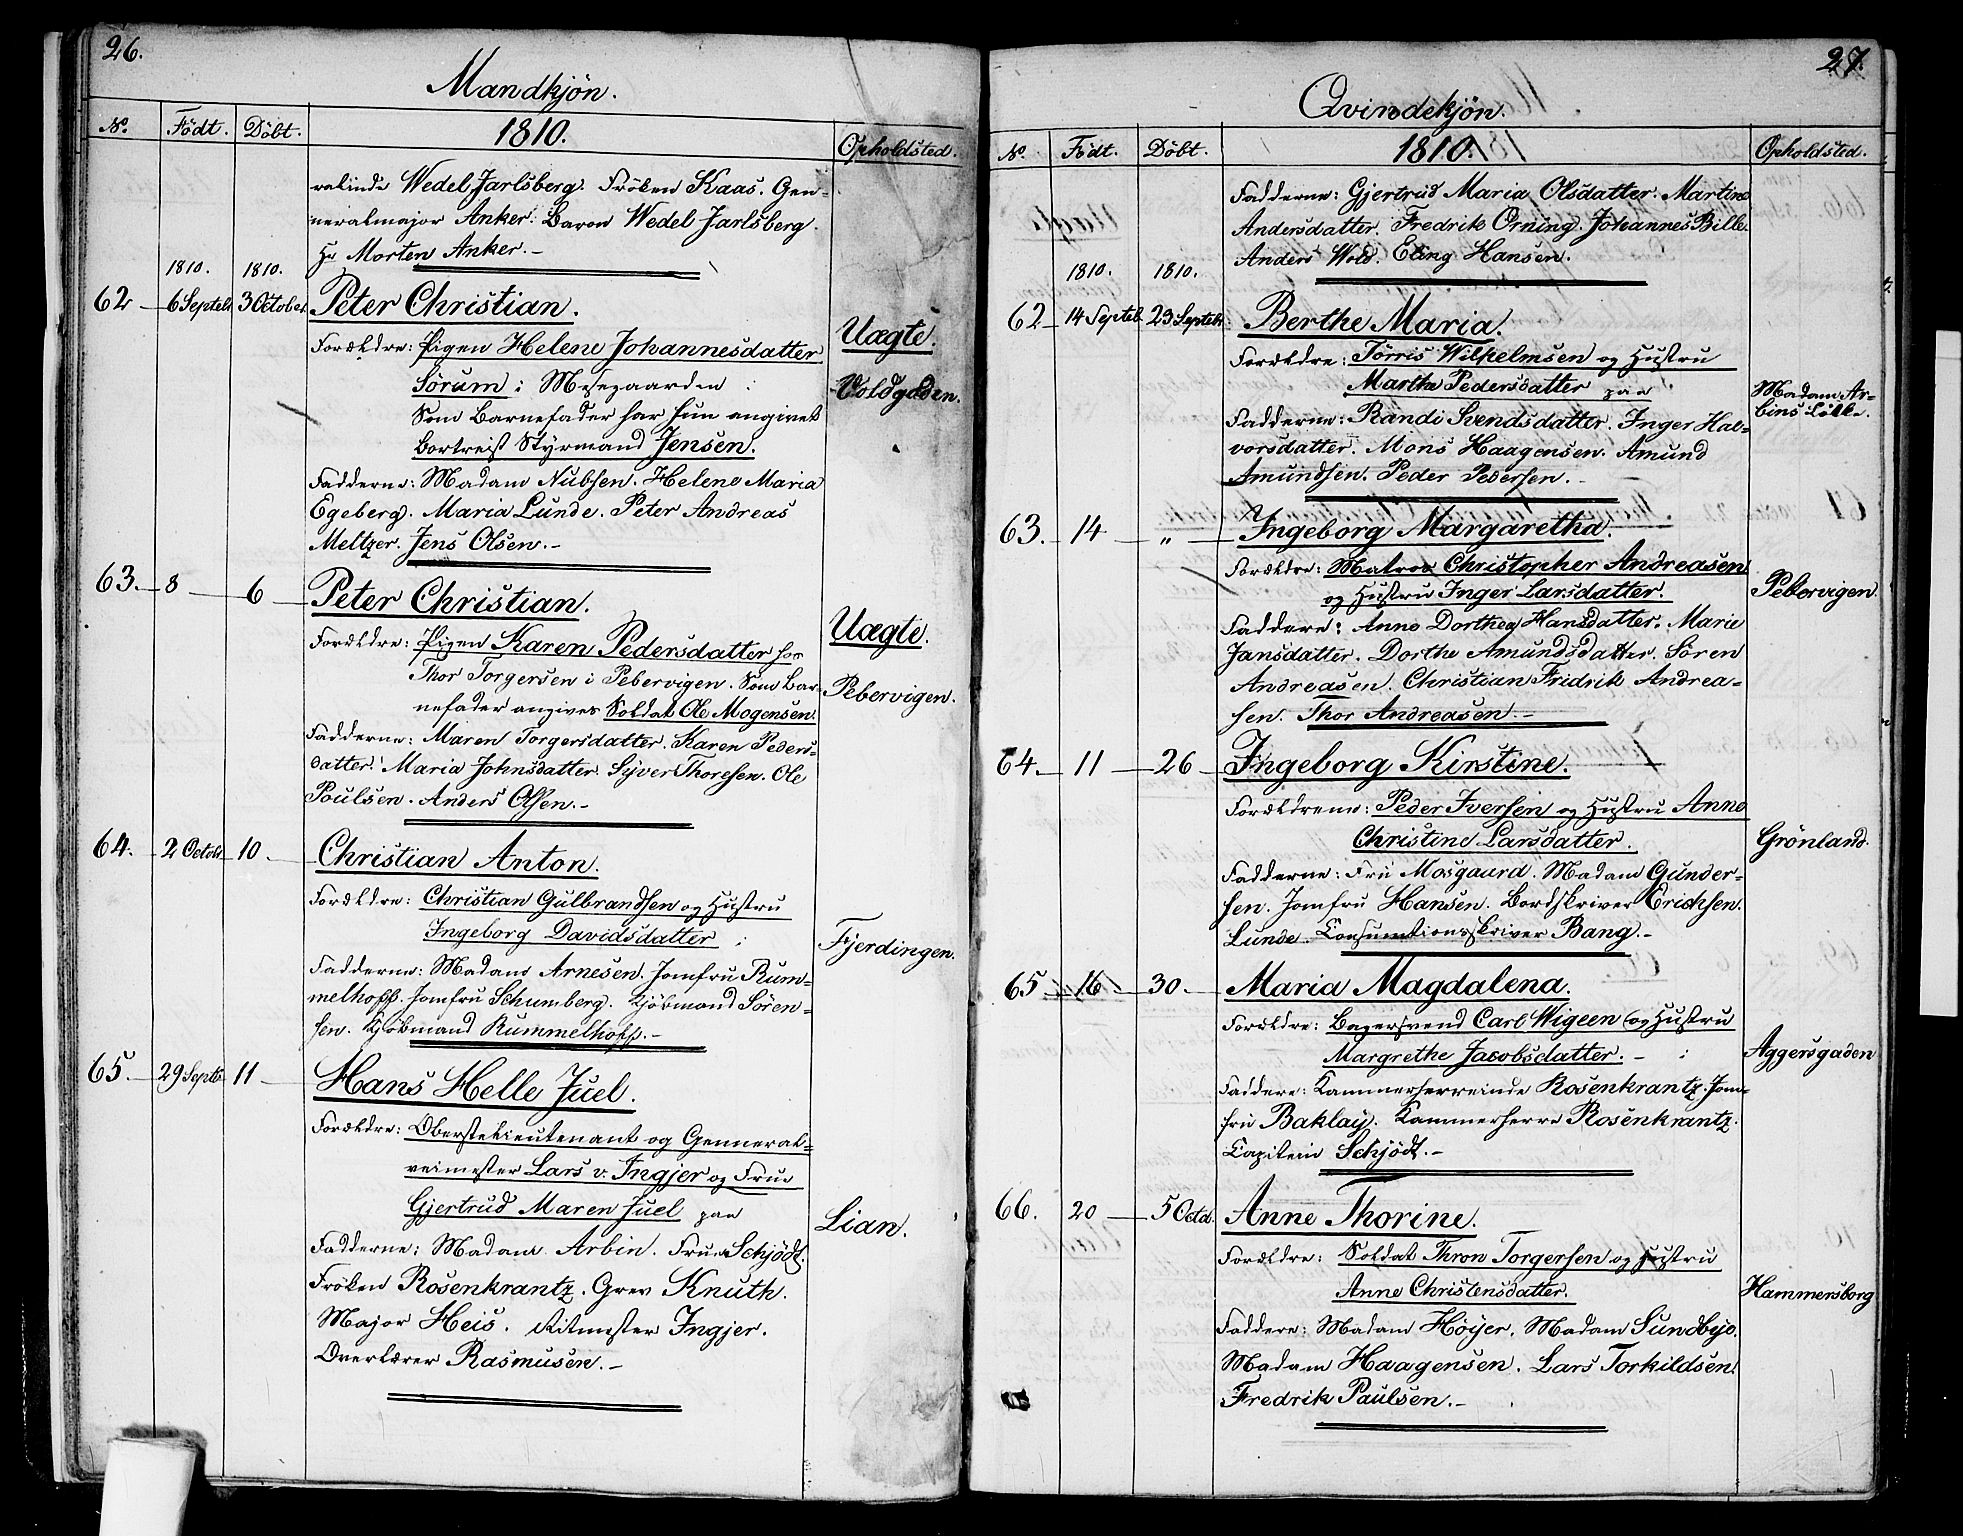 26.
Mandkjön.
No. Födt. Döbt. 1810. Opholdsted.
ralinde Wedel Jarlsberg. Fröken Kaas. Gen-
neralmajor Anker. Baron Wedel Jarlsberg.
Hr Morten Anker.-
1810. 1810.
62 6 Septebr 3 October Peter Christian.
Uægte.
Forældre: Pigen Helene Johannesdatter
Sörum i Mesegaarden i Voldgaden.
Som Barnefader har hun angivet
bortreist Styrmand Jensen.
Fadderne: Madam Nubsen. Helene Maria
Egeberg. Maria Lunde. Peter Andreas
Meltzer. Jens Olsen.-
63. 8 6 Peter Christian.
Uægte.
Forældre: Pigen Karen Pedersdatter hos
Thor Torgersen i Pebervigen. Som Bar- Pebervigen.
nefader angives Soldat Ole Mogensen.
Fadderne: Maren Torgersdatter. Karen Peders-
datter. Maria Johnsdatter. Syver Thoresen. Ole
Poulsen. Anders Olsen.-
64. 2 Octobr 10 Christian Anton.
Forældre: Christian Gulbrandsen og Hustru
Ingeborg Davidsdatter i Fjerdingen.
Fadderne: Madam Arnesen. Jomfru Rum-
melhoff. Jomfru Schumberg. Kjöbmand Sören-
sen. Kjöbmand Rummelhoff.-
65. 29 Septb. 11 Hans Helle Juel.
Forældre: Oberstelieutenant og Genneral-
veimester Lars v. Ingjer og Frue
Gjertrud Maren Juel paa Lian.
Fadderne: Madam Arbin. Frue Schjödt.
Fröken Rosenkrantz. Grev Knuth.
Major Heis. Ritmester Ingjer.
Overlærer Rasmusen.-
27.
Qvindekjön.
No. Födt. Döbt. 1810. Opholdsted.
Fadderne: Gjertrud Maria Olsdatter. Martine
Andersdatter. Fredrik Orning. Johannes Bille.
Anders Wold. Eling Hansen.
1810. 1810.
62 14 Septeb. 23 Septebr. Berthe Maria.
Forældre: Törris Wilhelmsen og Hustru
Marthe Pedersdatter paa Madam Ar-
bins Lökke.
Fadderne: Randi Svendsdatter. Inger Hal-
vorsdatter. Mons Haagensen. Amund
Amundsen. Peder Pedersen.-
63. 14 „ Ingeborg Margaretha.
Forældre: Matros Christopher Andreasen
og Hustru Inger Larsdatter. Pebervigen.
Faddere: Anne Dorthea Hansdatter. Marie
Jansdatter. Dorthe Amundsdatter. Sören
Andreasen. Christian Fridrik Andrea-
sen. Thor Andreasen.-
64. 11 26 Ingeborg Kirstine.
Forældrene: Peder Iversen og Hustru Anne
Christine Larsdatter. Grönland.
Fadderne: Fru Mosgaard. Madam Gunder-
sen. Jomfru Hansen. Bordskriver Erichsen.
Lunde. Consumtionsskriver Bang.-
65 16 30. Maria Magdalena.
Forældre: Bagersvend Carl Wigeen og Hustru
Margrethe Jacobsdatter.- i Aggersgaden
Faddere: Kammerherreinde Rosenkrantz. Jom-
fru Baklay. Kammerherre Rosenkrantz.
Capitein Schjödt.-
66. 20 5 Octb. Anne Thorine.
Forældre: Soldat Thron Torgersen og Hustru
Anne Christensdatter. Hammersborg
Faddere: Madam Höyer. Madam Sundbye.
Madam Haagensen. Lars Torkildsen.
Fredrik Paulsen.-